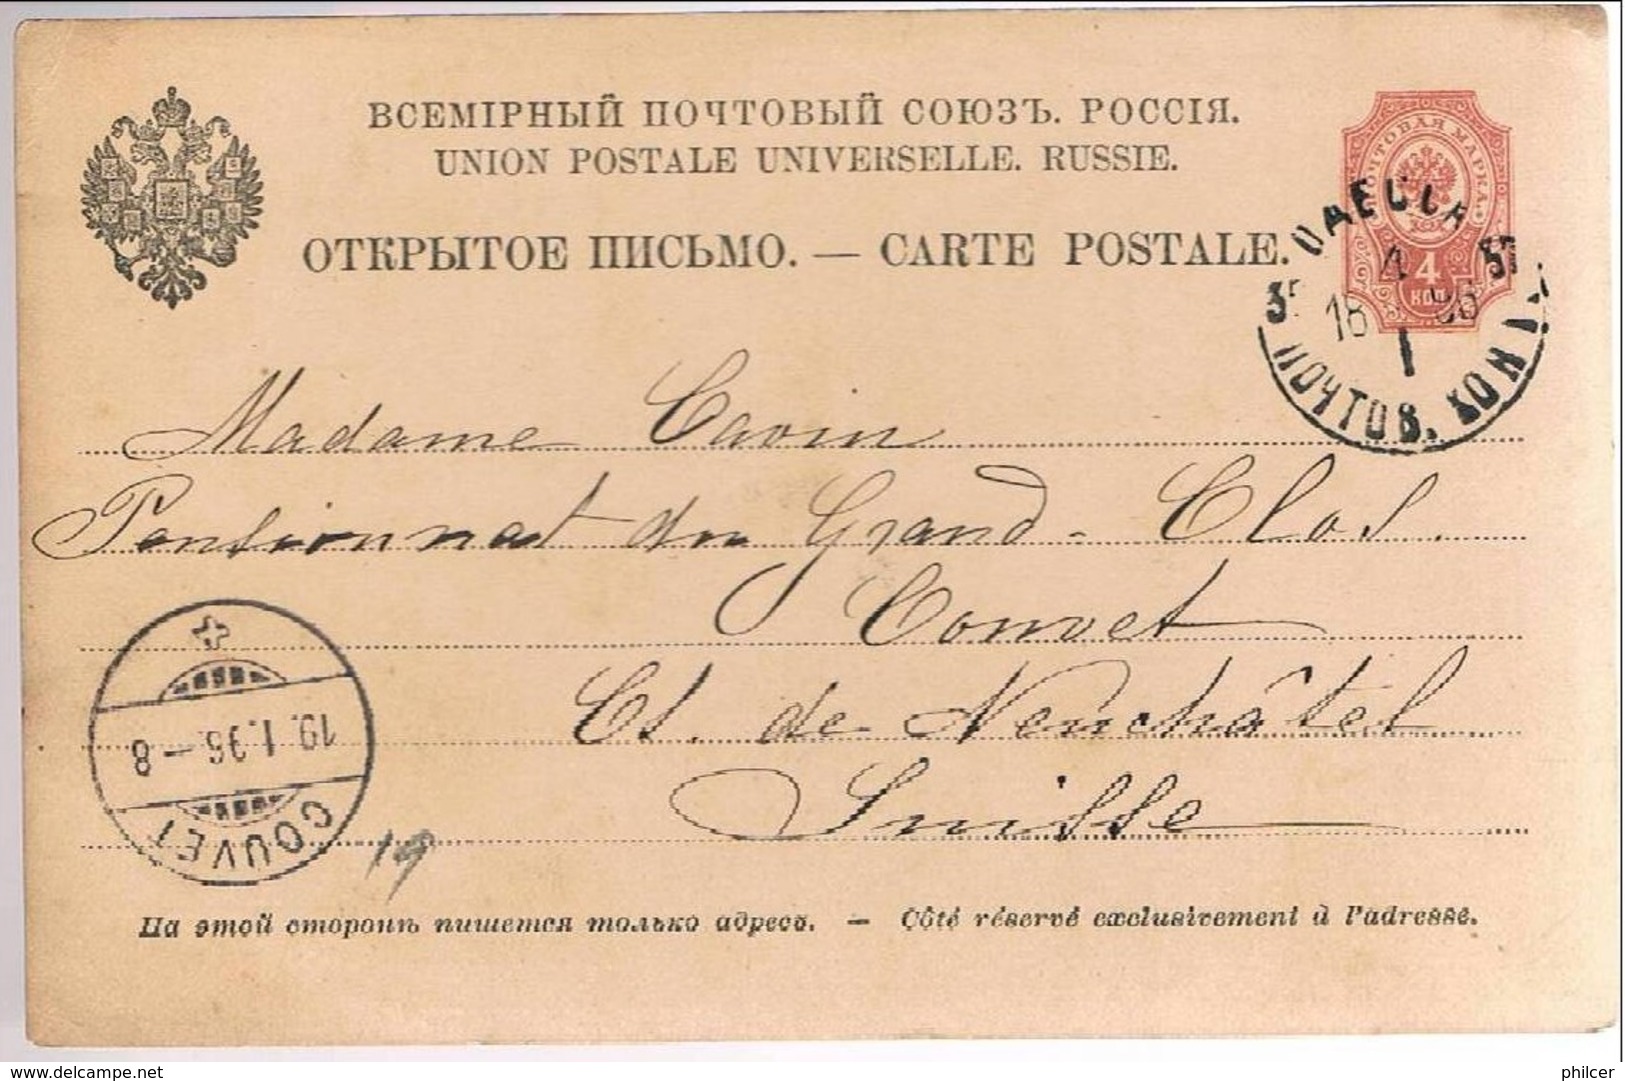 ВСЕМІРНЫЙ ПОЧТОВЫЙ СОЮЗЪ. РОССІЯ.
UNION POSTALE UNIVERSELLE. RUSSIE.
ОТКРЫТОЕ ПИСЬМО. — CARTE POSTALE.
ПОЧТОВАЯ МАРКА
4
КОП
ОДЕССА
4
18 96
1
ПОЧТОВ. КОН
Madame Cavin
Pensionnat du Grand-Clos.
Couvet
Ct. de Neuchâtel
Suisse
19. I. 96 – 8
COUVET
19
На этой сторонѣ пишется только адресъ. — Côté réservé exclusivement à l'adresse.
www.delcampe.net
philcer